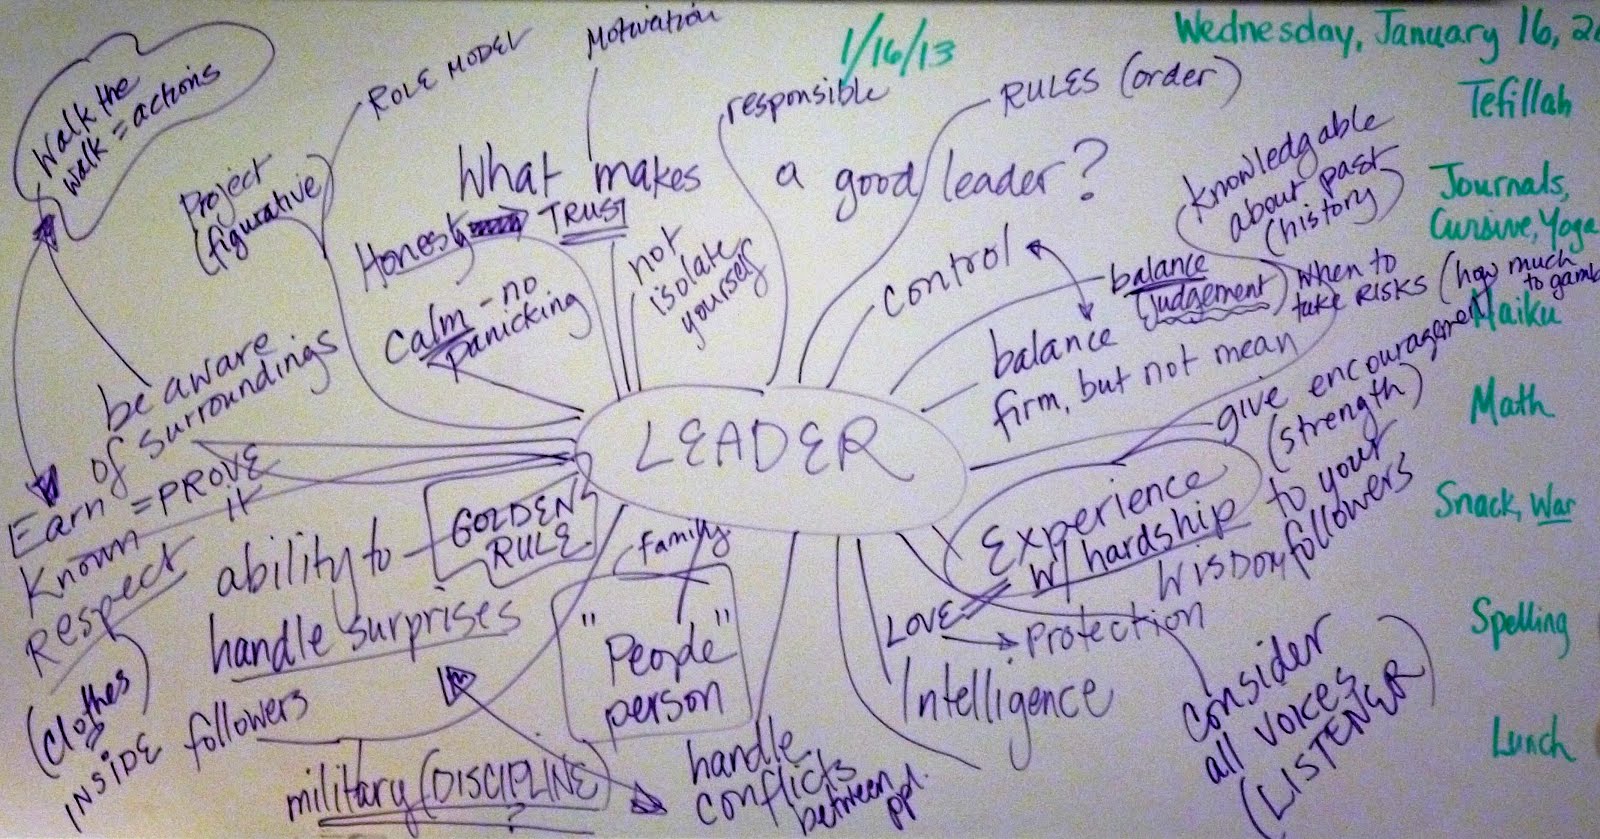 Walk the
walk = actions
ROLE MODEL
Motivation
1/16/13
Wednesday, January 16,
responsible
RULES (order)
Project
(figurative)
What makes a good leader?
Honesty
TRUST
not
isolate
yourself
calm - no
panicking
control
balance
firm, but not mean
balance
(judgement)
knowledgable
about past
(history)
when to
take RISKS
(how much
to gamb
give encouragement
(strength)
to your
followers
be aware
of surroundings
Earn = PROVE
it
Known
Respect
(clothes)
INSIDE
LEADER
ability to
handle surprises
GOLDEN
RULE
family
"People"
person
followers
military (DISCIPLINE)
?
handle
conflicts
between
ppl.
Experience
w/ hardship
WISDOM
LOVE
Protection
Intelligence
consider
all voices
(LISTENER)
Tefillah
Journals,
Cursive, Yoga
Haiku
Math
Snack, War
Spelling
Lunch